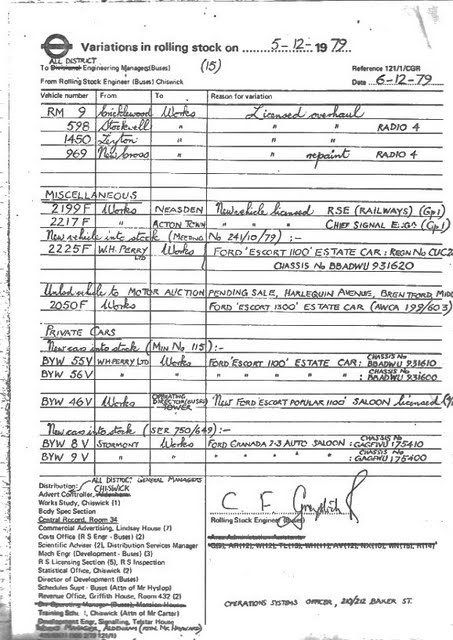 Variations in rolling stock on 5-12-1979
ALL DISTRICT
To Divisional Engineering Managers(Buses) (15) Reference 121/1/CGR
From Rolling Stock Engineer (Buses) Chiswick Date 6-12-79
Vehicle number From To Reason for variation
RM 9 Cricklewood Works Licensed overhaul
598 Stockwell " " " RADIO 4
1450 Leyton " " "
969 New Cross " " repaint RADIO 4
MISCELLANEOUS
2199F Works NEASDEN New vehicle licensed RSE (RAILWAYS) (Gp1)
2217F " ACTON TOWN " " " CHIEF SIGNAL ENGR (Gp1)
New vehicle into stock (MEETING No 241/10/79) :-
2225F W.H. PERRY LTD Works FORD 'ESCORT 1100' ESTATE CAR : REGN No CUC2
CHASSIS No BBADWU 931620
Unlsd vehicle to MOTOR AUCTION PENDING SALE, HARLEQUIN AVENUE, BRENTFORD, MIDD
2050F Works FORD 'ESCORT 1300' ESTATE CAR (AWCA 199/603)
PRIVATE CARS
New cars into stock (MIN No 115) :-
BYW 55V W.H PERRY LTD Works FORD 'ESCORT 1100' ESTATE CAR : CHASSIS No BBADWU 931610
BYW 56V " " " " " " " : BBADWU 931600
BYW 46V Works OPERATING DIRECTOR (BUSES) TOWER New FORD 'ESCORT POPULAR 1100' SALOON licensed
New cars into stock (SER 750/649) :-
BYW 8V STORMONT Works FORD GRANADA 2·3 AUTO SALOON : CHASSIS No GAGFWU 175410
BYW 9V " " " " " " " : GAGFWU 175400
Distribution: ALL DISTRICT GENERAL MANAGERS
CHISWICK
Advert Controller, Aldenham
Works Study, Chiswick (1)
Body Spec Section
Central Record, Room 34
Commercial Advertising, Lindsay House (7)
Costs Office (R S Engr - Buses) (2)
Scientific Adviser (2), Distribution Services Manager
Mech Engr (Development - Buses) (3)
R S Licensing Section (5), R S Inspection
Statistical Office, Chiswick (2)
Director of Development (Buses)
Schedules Supt - Buses (Attn of Mr Hyslop)
Revenue Office, Griffith House, Room 432 (2)
Training Sch. 1, Chiswick (Attn of Mr Carter)
Development Engr, Signalling, Telstar House
Rolling Stock Engineer (Buses)
Area Administration Assistants
OPERATIONS SYSTEMS OFFICER, 210/212 BAKER ST.